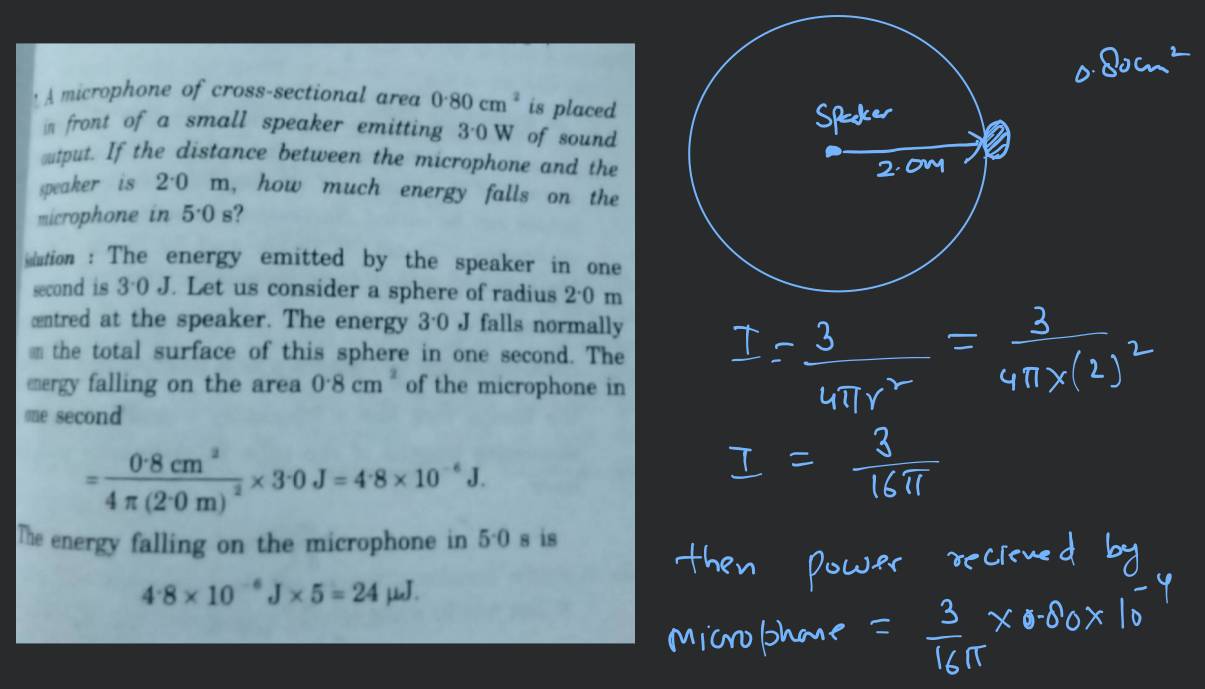 A microphone of cross-sectional area 0·80 cm² is placed
in front of a small speaker emitting 3·0 W of sound
output. If the distance between the microphone and the
speaker is 2·0 m, how much energy falls on the
microphone in 5·0 s?
Solution : The energy emitted by the speaker in one
second is 3·0 J. Let us consider a sphere of radius 2·0 m
centred at the speaker. The energy 3·0 J falls normally
on the total surface of this sphere in one second. The
energy falling on the area 0·8 cm² of the microphone in
one second
= 0·8 cm² / 4 π (2·0 m)² × 3·0 J = 4·8 × 10⁻⁶ J.
The energy falling on the microphone in 5·0 s is
4·8 × 10⁻⁶ J × 5 = 24 μJ.
0.80cm²
Speaker
2.0m
I = 3 / 4πr² = 3 / 4π×(2)²
I = 3 / 16π
then power recieved by
microphone = 3 / 16π × 0.80 × 10⁻⁴